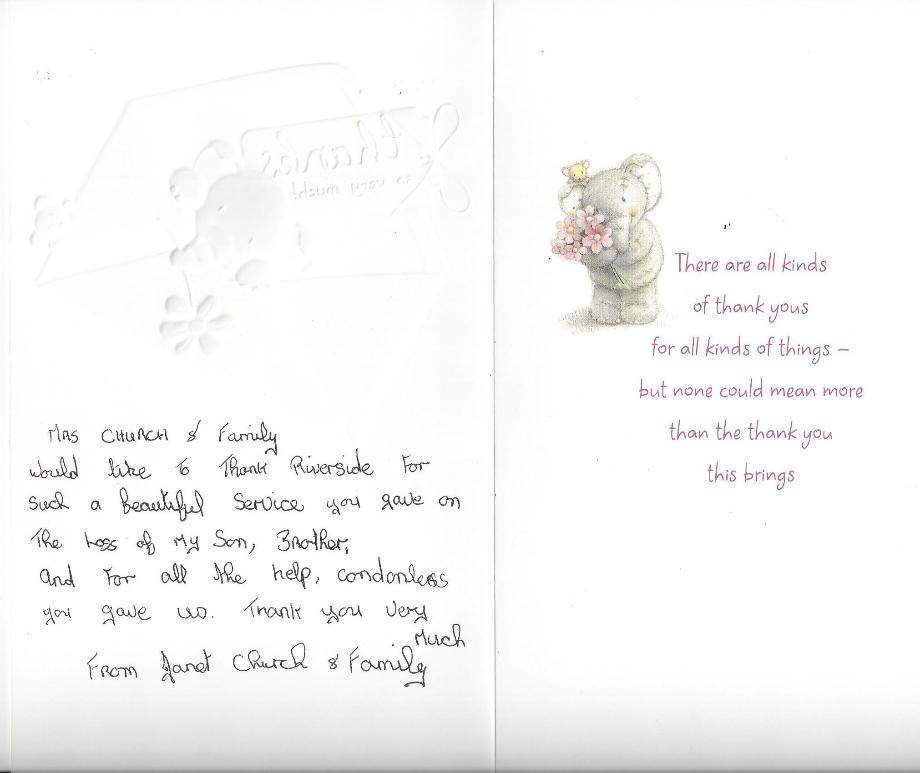 thanks
so very much!
Mrs CHURCH & Family
would like To Thank Riverside For
Such a Beautiful Service you gave on
The Loss of My Son, Brother,
and For all the help, condonless
you gave us. Thank you Very
Much
From Janet Church & Family
There are all kinds
of thank yous
for all kinds of things –
but none could mean more
than the thank you
this brings